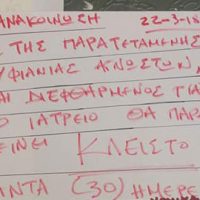 ΑΝΑΚΟΙΝΩΣΗ 22-3-18
ΤΗΣ ΠΑΡΑΤΕΤΑΜΕΝΗΣ
ΥΦΙΑΝΙΑΣ ΑΝΩΣΤΩΝ
ΑΙ ΔΙΕΦΘΑΡΜΕΝΟΣ ΓΙΑ
Ο ΙΑΤΡΕΙΟ ΘΑ ΠΑΡΑ
ΕΙΝΕΙ ΚΛΕΙΣΤΟ
ΑΝΤΑ (30) ΗΜΕΡΕ